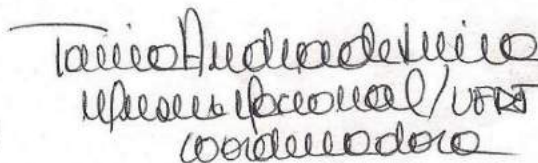 Tania Andrade Lima
Museu Nacional/UFRJ
coordenadora